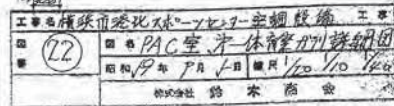 工事名 横浜市港北スポーツセンター空調設備工事
図番 22
図名 PAC室、第一体育室ガラリ詳細図
昭和59年9月1日 縮尺 1/20 1/10 1/40
株式会社 鈴木商会